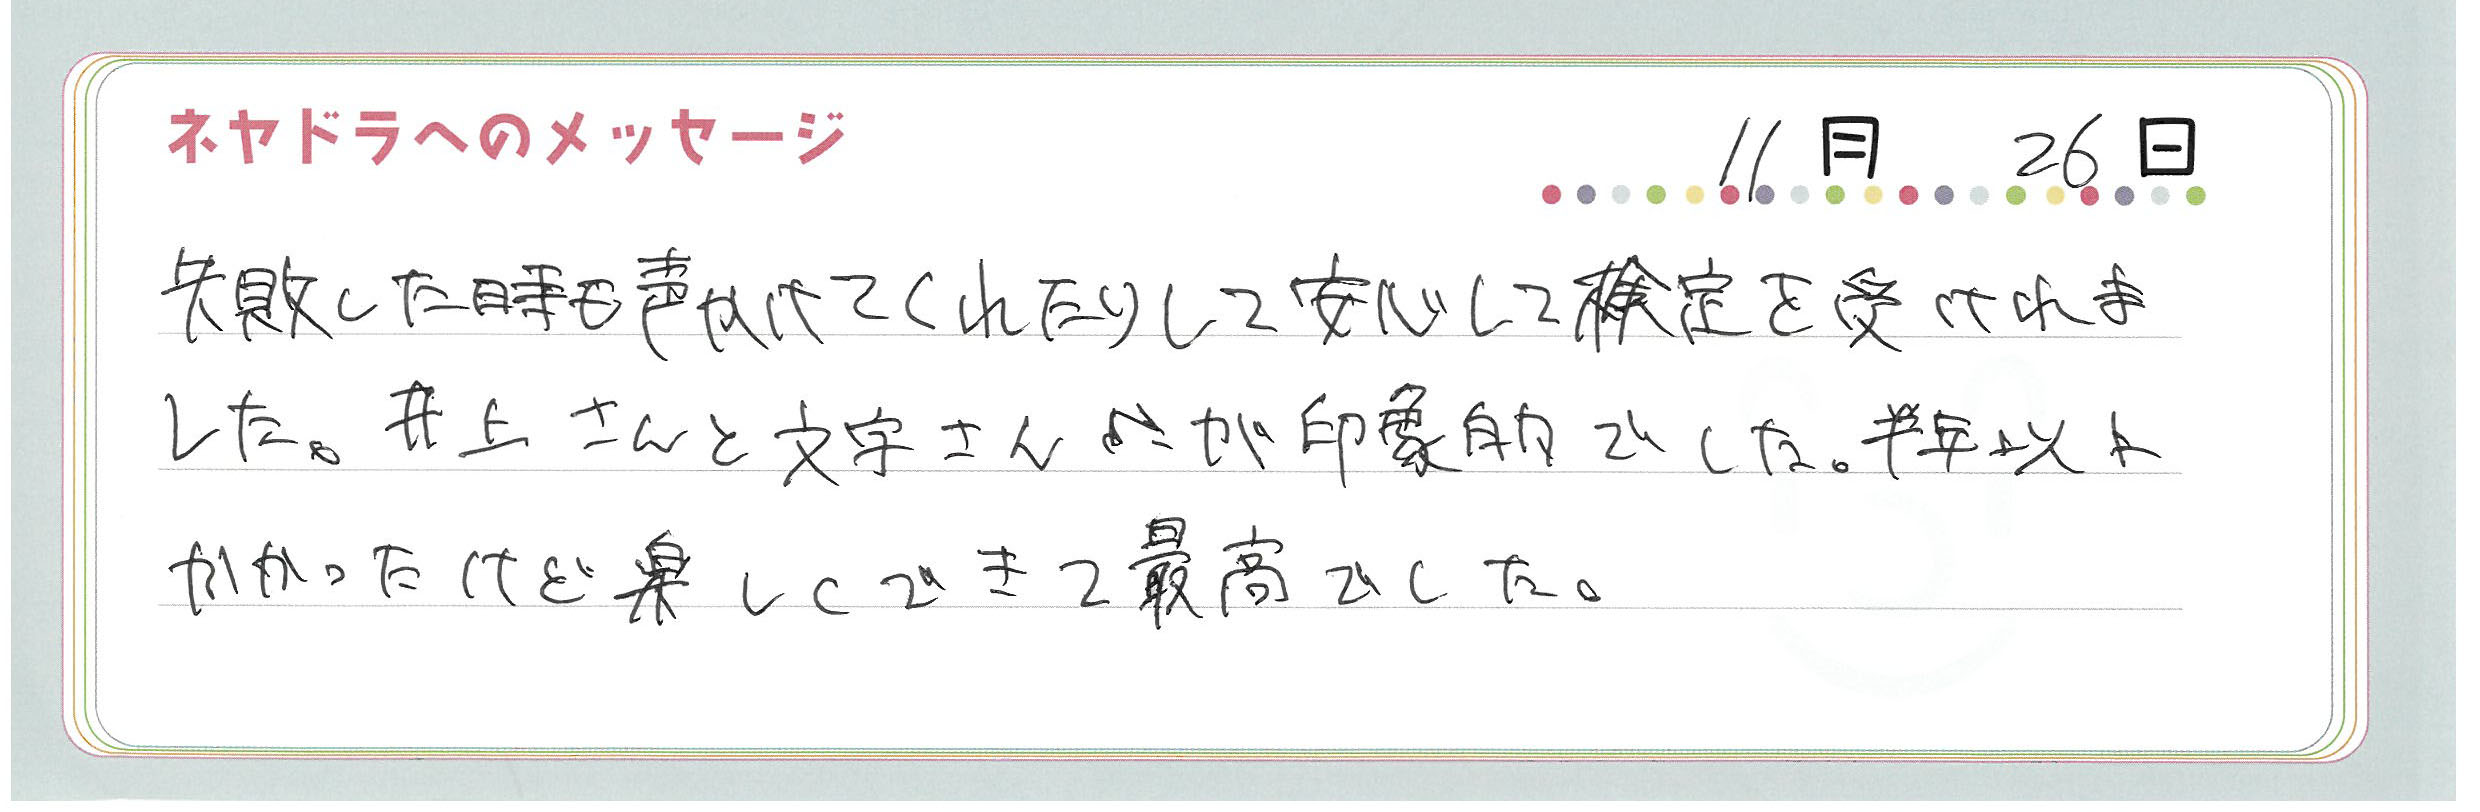 ネヤドラへのメッセージ
11月 26日
失敗した時も声かけてくれたりして安心して検定を受けれま
した。井上さんと文字さんが印象的でした。半年以上
かかったけど楽しくできて最高でした。